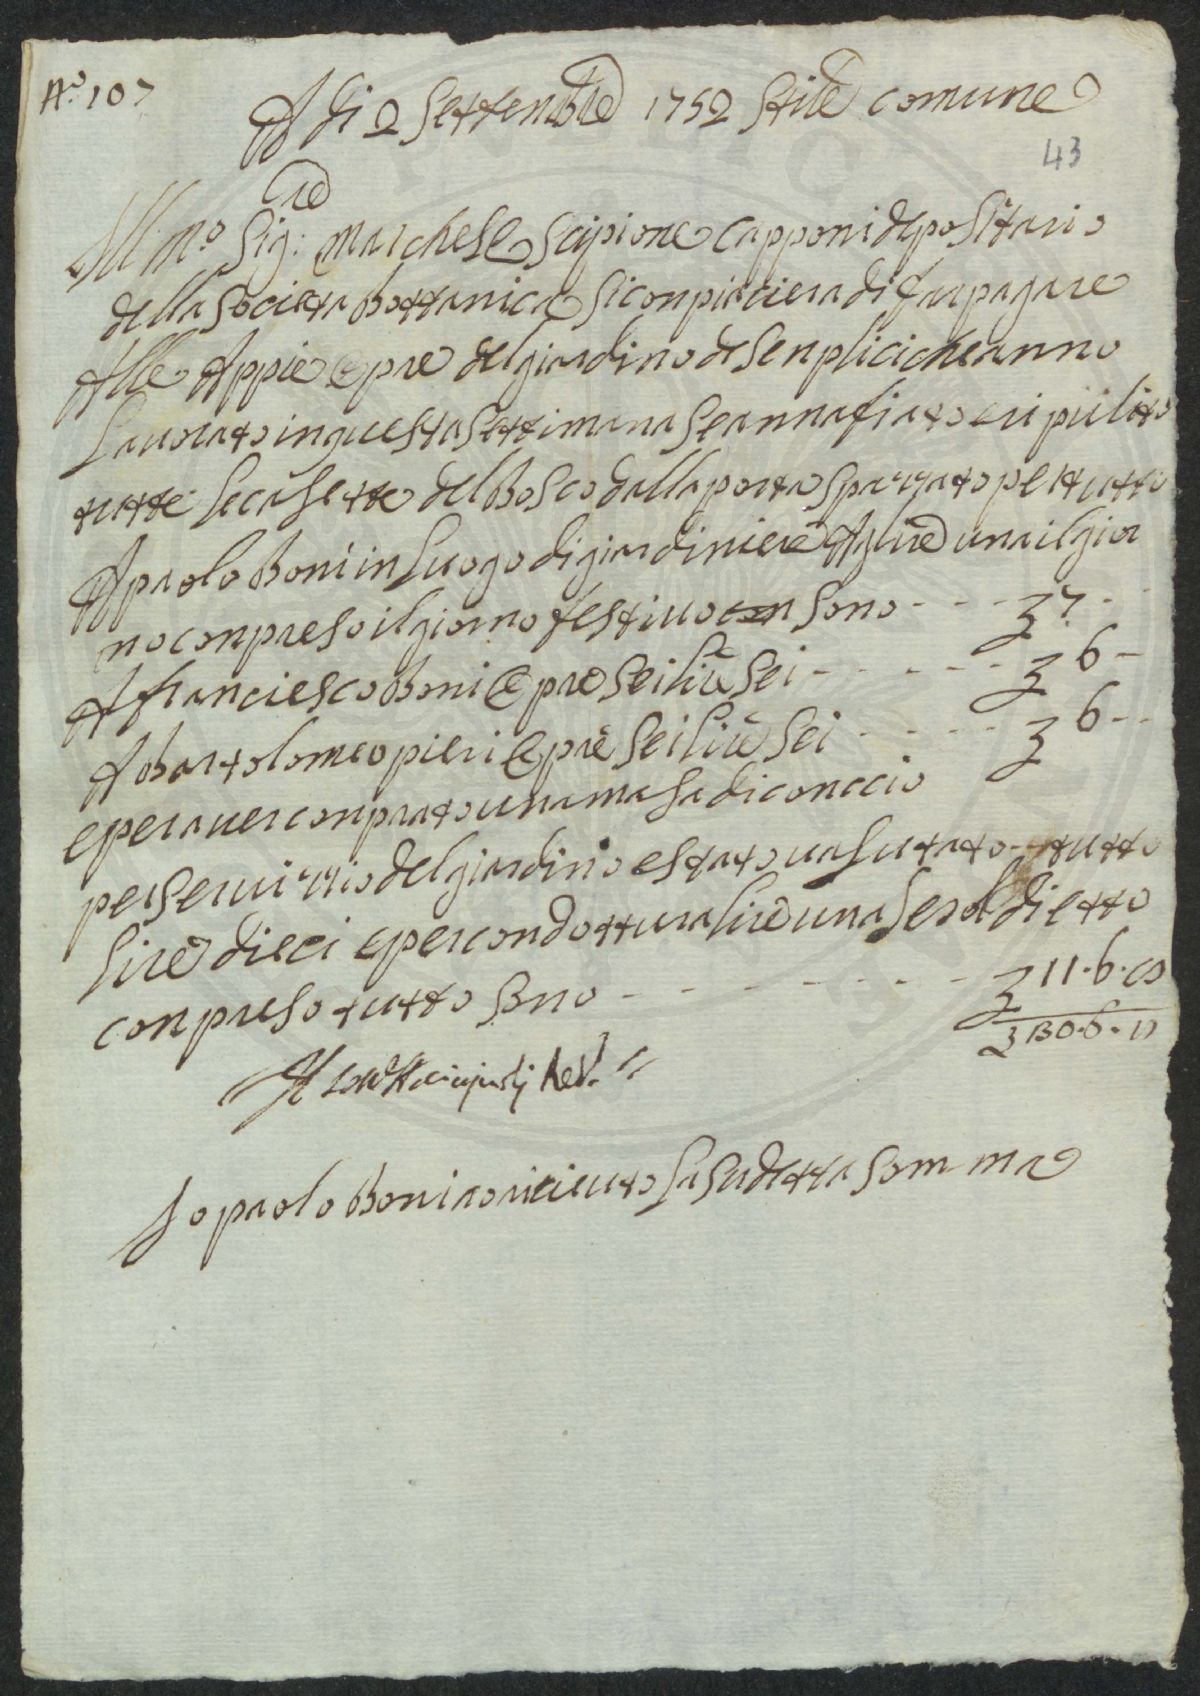 N.o 107
A di 2 Settenbre 1752 Stile comune
43
Ill.mo Sig:re Marchese Scipione Capponi depositario
della Società Bottanica Siconpiaciera di far pagare
Alle Appie Opre del giardino de Senplici che anno
Lauorato in questa Settimana Se annafiato e ripulito
tutte le casette del Bosco dalla porta Spazzato per tutto
A paolo Boni in Luogo di giardiniere A lire una il gior
no conpreso il giorno festiuo con Sono - - - - Ʒ 7 - -
A franciesco Boni Opre Sei lire Sei - - - - - - Ʒ 6 -
A Bartolomeo pieri Opre Sei lire Sei - - - - Ʒ 6 - -
e per auer conprato una massa di conccio
per seruizzio del giardino e stato ualutato tutto
lire dieci e per condottura lire una e soldi etto
conpreso tutto Sono - - - - - - - - Ʒ 11.6.
Ʒ 130.6.
Io paolo Boni ao riceuuto la sudetta Somma